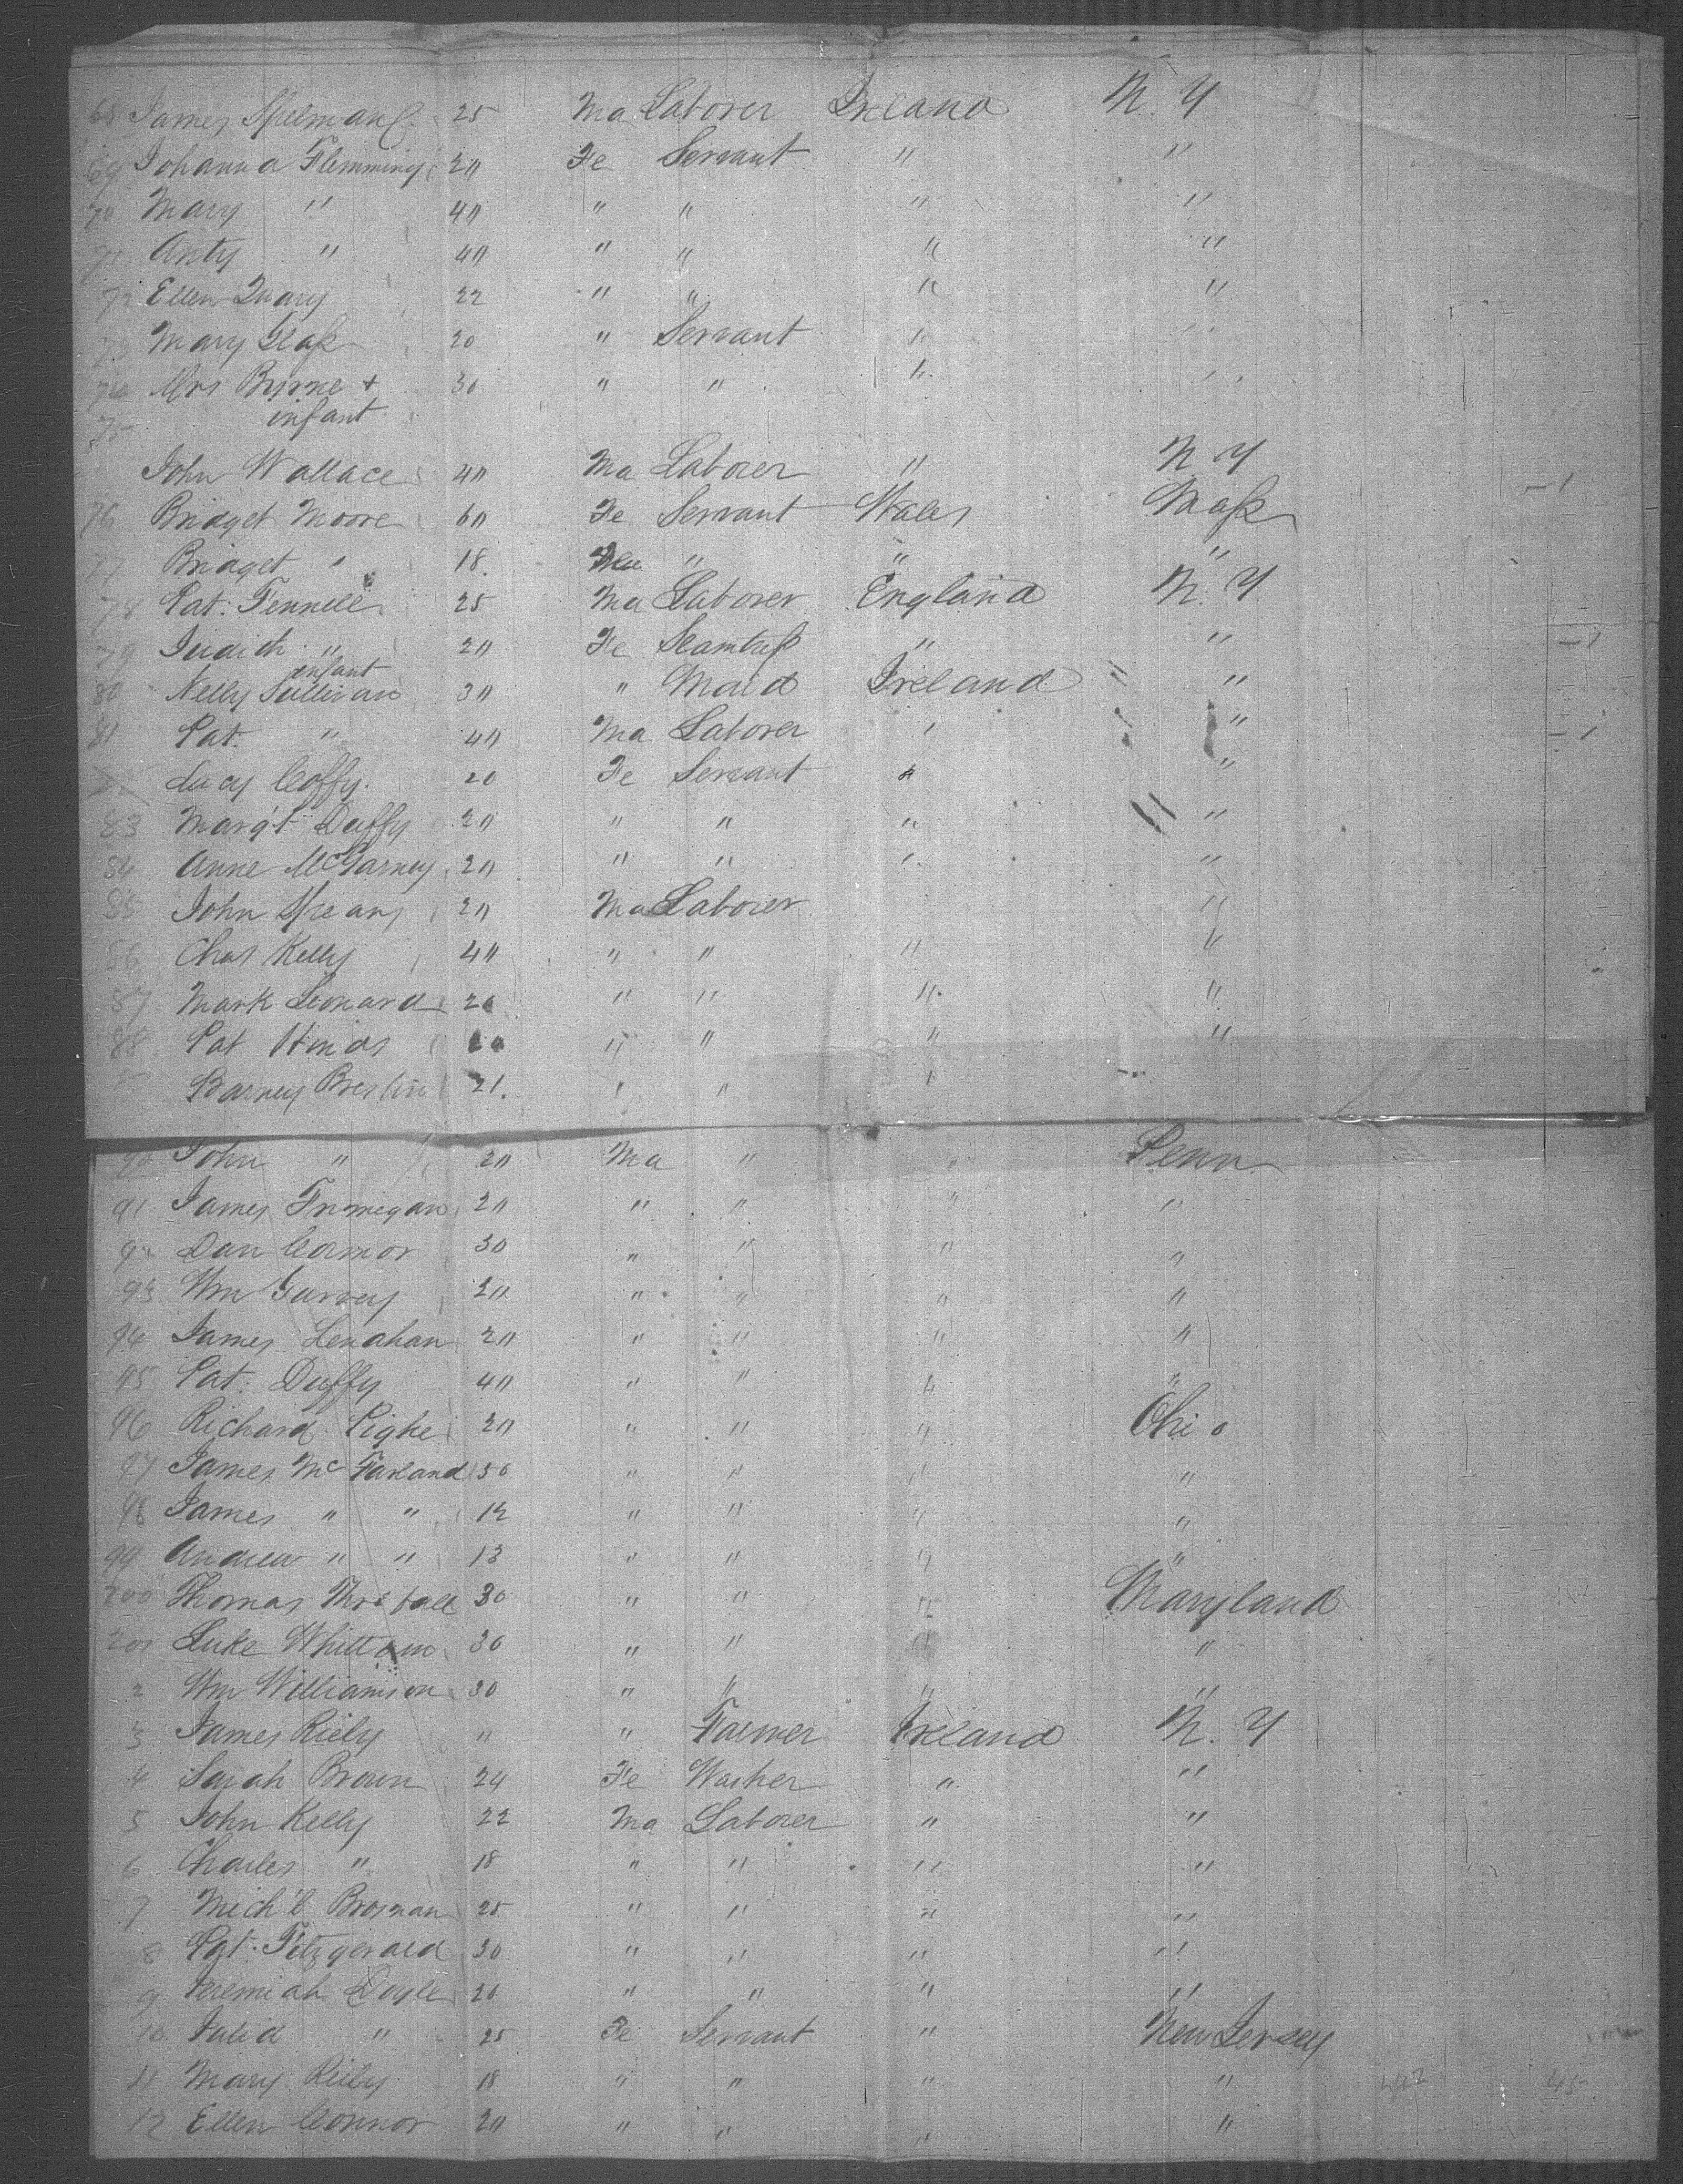 68 James Spelman 25 Ma Laborer Ireland N. Y
69 Johanna Flemming 20 Fe Servant " "
70 Mary " 40 " " " "
71 Anty " 40 " " " "
72 Ellen Quary 22 " " " "
73 Mary Glass 20 " Servant " "
74 Mrs Byrne + 30 " " " "
75 infant
John Wallace 40 Ma Laborer " N Y - 1
76 Bridget Moore 60 Fe Servant Wales Mass
77 Bridget " 18. " " "
78 Pat. Fennell 25 Ma Laborer England N. Y
79 Judith " 20 Fe Seamtress " " - 1
infant
80 Nelly Sullivan 30 " Maid Ireland " "
81 Pat. " 40 Ma Laborer " " - 1
Lucy Coffy. 20 Fe Servant " "
83 Marg't Duffy 20 " " " "
84 Anne McGarney 20 " " " "
85 John Spears 20 Ma Laborer "
86 Chas Kelly 40 " " " "
87 Mark Leonard 20 " " " "
88 Pat Hinds " " " "
Barney Breslin 21. " " "
90 John " 20 Ma " " Penn
91 James Finnegan 20 " " " "
92 Dan Connor 30 " " " "
93 Wm Garvey 20 " " " "
94 James Lenahan 20 " " " "
95 Pat. Duffy 40 " " " "
96 Richard Pighe 20 " " " Ohio
97 James McFarland 50 " " " "
98 James " " 12 " " " "
99 Andrew " " 13 " " " "
200 Thomas 30 " " " Maryland
201 Luke Whittam 30 " " " "
2 Wm Williamson 30 " " " "
3 James Riely " " Farmer Ireland N. Y
4 Sarah Brown 24 Fe Washer " "
5 John Kelly 22 Ma Laborer " "
6 Charles " 18 " " " "
7 Mich'l Brosnan 25 " " " "
8 Pat. Fitzgerald 30 " " " "
9 Jeremiah Doyle 20 " " " "
10 Julia " 25 Fe Servant " New Jersey
11 Mary Riely 18 " " " " 45
12 Ellen Connor 20 " " " "